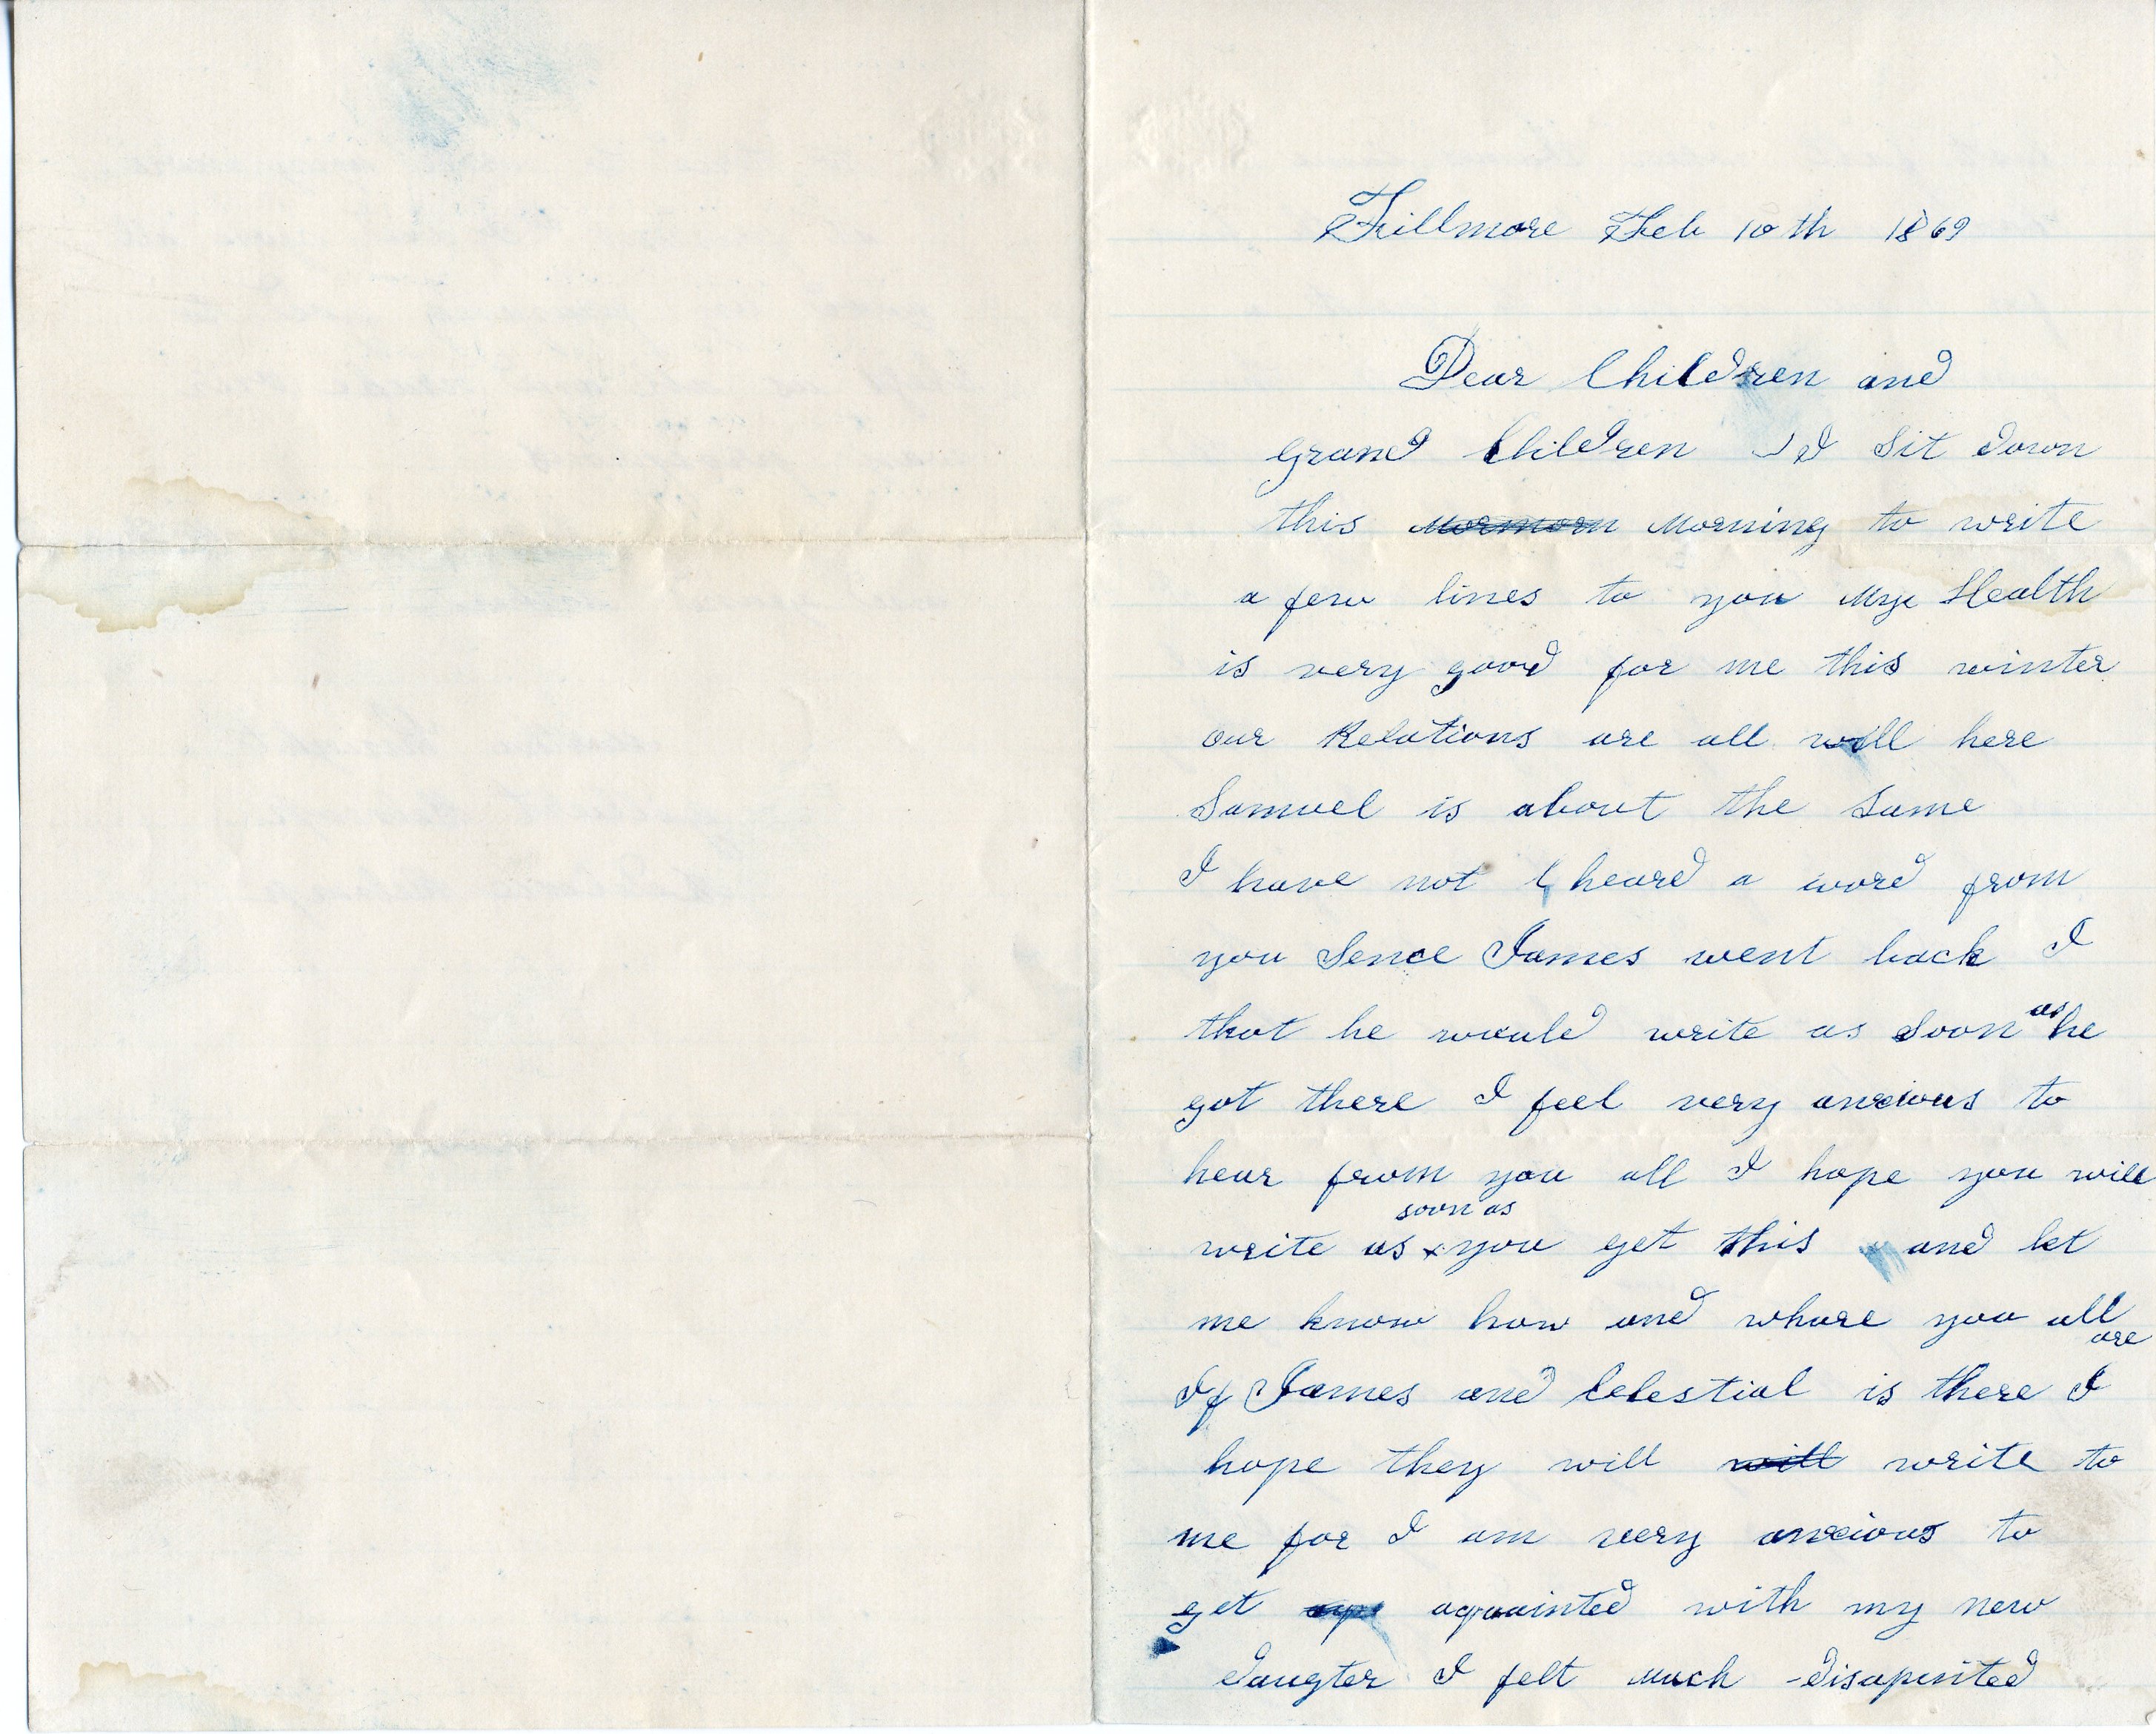 Fillmore Feb 10th 1869
Dear Children and
Grand Children I Sit down
this ~~Mormorn~~ Morning to write
a few lines to you My Health
is very good for me this winter
our Relations are all well here
Samuel is about the Same
I have not heard a word from
you Sence James went back I
that he would write as Soon as he
got there I feel very anxious to
hear from you all I hope you will
write as soon as you get this and let
me know how and whare you all are
If James and Celestial is there I
hope they will ~~will~~ write to
me for I am very anxious to
get aquainted with my new
daugter I felt much disapinted